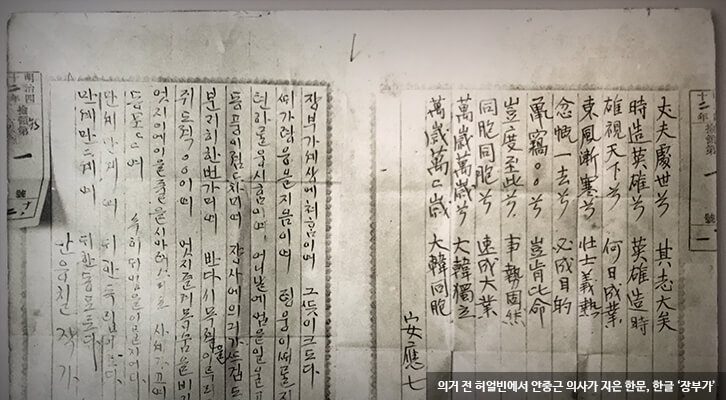 十二年 第
一
號
丈夫處世兮 其志大矣
時造英雄兮 英雄造時
雄視天下兮 何日成業
東風漸寒兮 壯士義熱
念慨一去兮 必成目的
鼠竊○○兮 豈肯比命
豈度至此兮 事勢固然
同胞同胞兮 速成大業
萬歲萬歲兮 大韓獨立
萬歲萬々歲 大韓同胞
安應七
쟝부가세샹에쳐함이여 그뜻이크도다
ᄯᅢ가령웅을지음이여 령웅이ᄯᅢ를지
텬하를웅시함이여 어니날에업을일울고
동풍이졈드차미여 쟝사에의긔가뜨겁도
분긔히한번가미여 반다시목뎍을이루리
쥐도적○○이여 엇지즐게목숨을비길
엇지이에이를줄을시아려스리오 사셰가고
동포동포여 속히대업을이룰지어다
만세만세여 대한독립이로다
만세만만세여 대한동포로다
안응칠 작가
明治四十二年 領第
一
號
의거 전 하얼빈에서 안중근 의사가 지은 한문, 한글 '장부가'